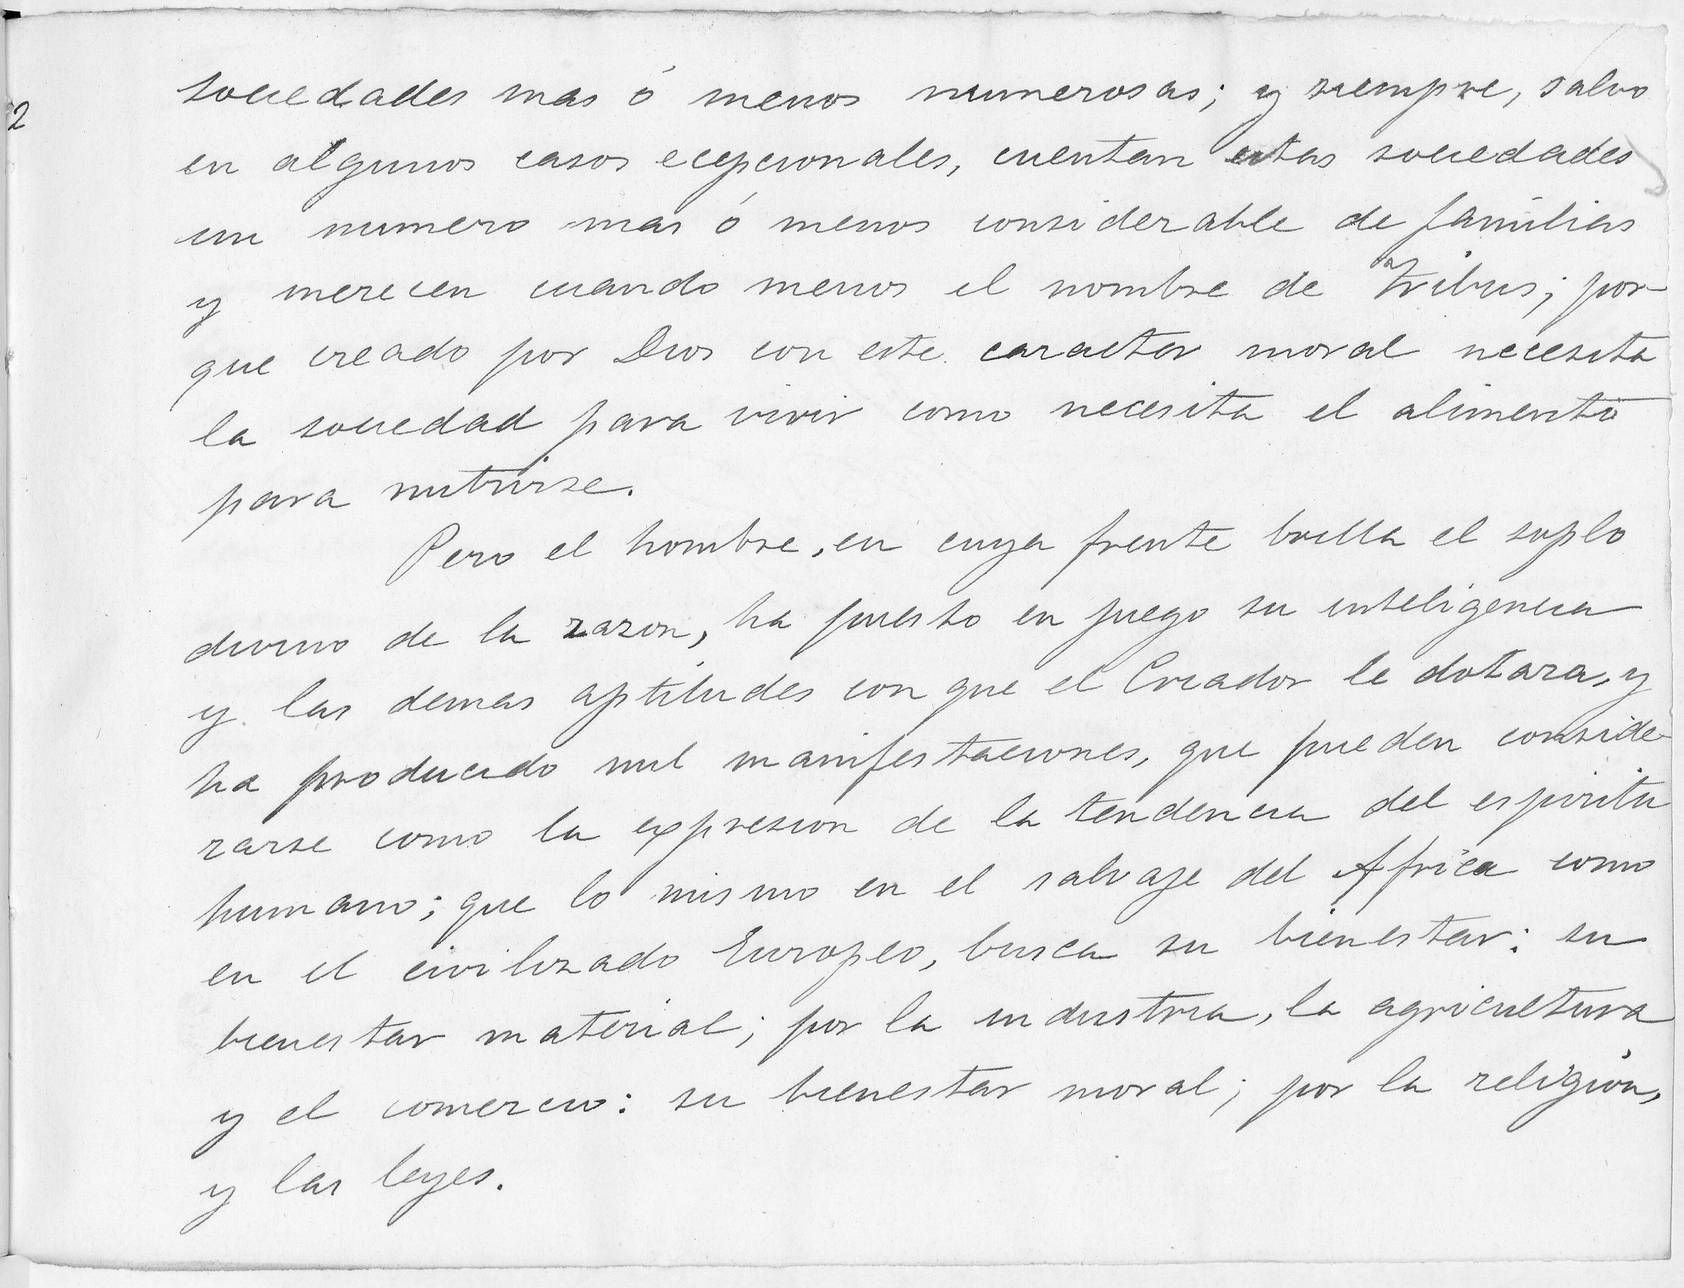 sociedades mas ó menos numerosas; y siempre, salvo
2
en algunos casos ecepcionales, cuentan estas sociedades
un numero mas ó menos considerable de familias
y merecen cuando menos el nombre de tribus; por-
que creado por Dios con este caracter moral necesita
la sociedad para vivir como necesita el alimento
para nutrirse.
Pero el hombre, en cuya frente brilla el soplo
divino de la razon, ha puesto en juego su inteligencia
y las demas aptitudes con que el Creador le dotara, y
ha producido mil manifestaciones, que pueden conside-
rarse como la expresion de la tendencia del espiritu
humano; que lo mismo en el salvaje del Africa como
en el civilizado Europeo, busca su bienestar: su
bienestar material; por la industria, la agricultura
y el comercio: su bienestar moral; por la religión,
y las leyes.